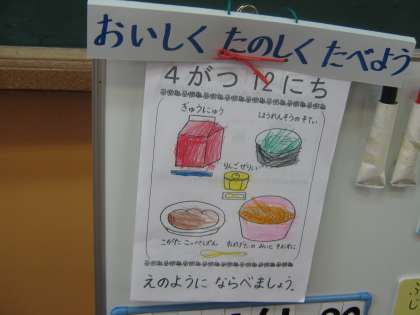 おいしく たのしく たべよう
4がつ 12にち
ぎゅうにゅう
ほうれんそうの そてい
りんごぜりい
こがた こっぺぱん
えのように ならべましょう。